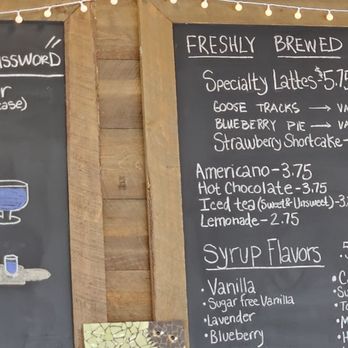 ASSWORD
FRESHLY BREWED
Specialty Lattes $5.75
GOOSE TRACKS → VA
BLUEBERRY PIE → VA
Strawberry Shortcake-
Americano - 3.75
Hot Chocolate - 3.75
Iced tea (Sweet & Unsweet) - 3.
Lemonade - 2.75
Syrup Flavors .5
• Vanilla
• Sugar free Vanilla
• Lavender
• Blueberry